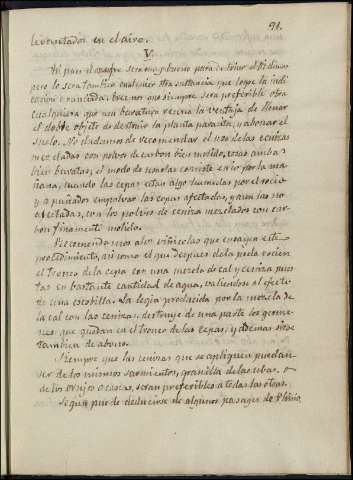 91.
levantados en el aire.
V.
Si pues el azufre sera muy bueno para detener el Oidium
pero lo sera tambien cualquier otra sustancia que logre la indi
cacion enunciada, creemos que siempre sera preferible otra
cualquiera que con baratura reuna la ventaja de llenar
el doble objeto de destruir la planta parasita, y abonar el
suelo. No dudamos de recomendar el uso de las cenizas
mezcladas con polvos de carbon bien molido, cosas ambas
bien baratas, el modo de usarlas consiste en ir por la ma
ñana, cuando las cepas estan algo humedas por el rocio
y a puñados empolvar las cepas afectadas, y aun las no
afectadas, con los polvos de ceniza mezclados con car
bon finamente molido.
Recomendamos a los viñicolas que ensayen este
procedimiento, asi como el que despues de la poda rocien
el tronco de la cepa con una mezcla de cal y ceniza pues
tas en bastante cantidad de agua, valiendose al efecto
de una escobilla. La legia producida por la mezcla de
la cal con las cenizas, destruye de una parte los germe
nes que quedan en el tronco de las cepas, y ademas sirve
tambien de abono.
Siempre que las cenizas que se apliquen puedan
ser de los mismos sarmientos, granilla de las uvas, o
de los orujos o casca, seran preferibles a todas las otras.
Segun puede deducirse de algunos pasages de Plinio,